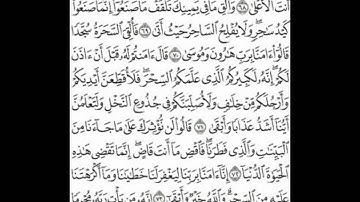 أَنتَ ٱلْأَعْلَىٰ ٦٨ وَأَلْقِ مَا فِى يَمِينِكَ تَلْقَفْ مَا صَنَعُوٓا۟ إِنَّمَا صَنَعُوا۟
كَيْدُ سَٰحِرٍ وَلَا يُفْلِحُ ٱلسَّاحِرُ حَيْثُ أَتَىٰ ٦٩ فَأُلْقِىَ ٱلسَّحَرَةُ سُجَّدًا
قَالُوٓا۟ ءَامَنَّا بِرَبِّ هَٰرُونَ وَمُوسَىٰ ٧٠ قَالَ ءَامَنتُمْ لَهُۥ قَبْلَ أَنْ ءَاذَنَ
لَكُمْ إِنَّهُۥ لَكَبِيرُكُمُ ٱلَّذِى عَلَّمَكُمُ ٱلسِّحْرَ فَلَأُقَطِّعَنَّ أَيْدِيَكُمْ
وَأَرْجُلَكُم مِّنْ خِلَٰفٍ وَلَأُصَلِّبَنَّكُمْ فِى جُذُوعِ ٱلنَّخْلِ وَلَتَعْلَمُنَّ
أَيُّنَآ أَشَدُّ عَذَابًا وَأَبْقَىٰ ٧١ قَالُوا۟ لَن نُّؤْثِرَكَ عَلَىٰ مَا جَآءَنَا مِنَ
ٱلْبَيِّنَٰتِ وَٱلَّذِى فَطَرَنَا فَٱقْضِ مَآ أَنتَ قَاضٍ إِنَّمَا تَقْضِى هَٰذِهِ
ٱلْحَيَوٰةَ ٱلدُّنْيَآ ٧٢ إِنَّآ ءَامَنَّا بِرَبِّنَا لِيَغْفِرَ لَنَا خَطَٰيَٰنَا وَمَآ أَكْرَهْتَنَا
عَلَيْهِ مِنَ ٱلسِّحْرِ وَٱللَّهُ خَيْرٌ وَأَبْقَىٰٓ ٧٣ إِنَّهُۥ مَن يَأْتِ رَبَّهُۥ مُجْرِمًا